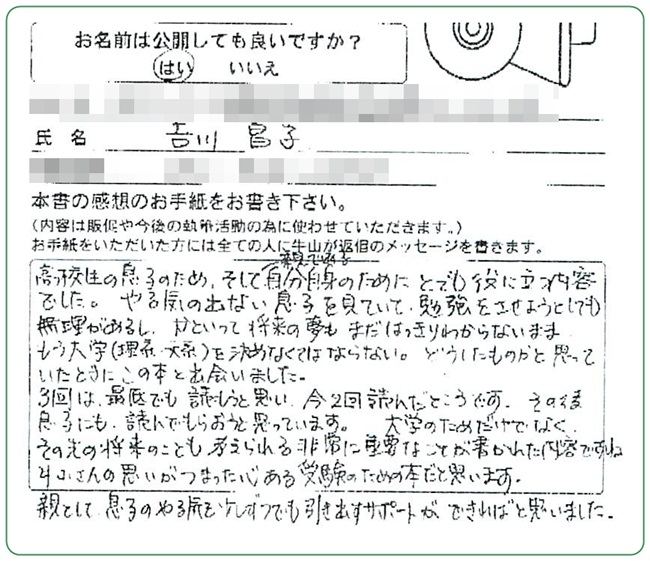 お名前は公開しても良いですか?
はい いいえ
氏名 吉川 昌子
本書の感想のお手紙をお書き下さい。
(内容は販促や今後の執筆活動の為に使わせていただきます。)
お手紙をいただいた方には全ての人に牛山が返信のメッセージを書きます。
親である
高校生の息子のため、そして自分自身のためにとても役に立つ内容
でした。 やる気の出ない息子を見ていて、勉強をさせようとしても
無理があるし、かといって将来の夢もまだはっきりわからないまま
もう大学(理系・文系)を決めなくてはならない。 どうしたものかと思って
いたときにこの本と出会いました。
3回は、最低でも読もうと思い、今2回読んだところです。 その後
息子にも、読んでもらおうと思っています。 大学のためだけでなく、
その先の将来のことも考えられる非常に重要なことが書かれた内容ですね
牛山さんの思いがつまった心ある受験のための本だと思います。
親として、息子のやる気を少しずつでも引き出すサポートができればと思いました。